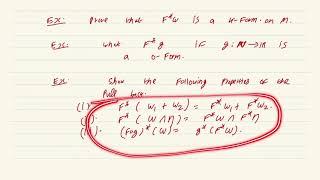 Ex: Prove that F*ω is a k-Form on M.
Ex: what F*g if g: N→ℝ is
a 0-Form.
Ex: Show the Following Properties of the
Pull back.
(1) F*(ω₁ + ω₂) = F*ω₁ + F*ω₂.
F*(ω ∧ η) = F*ω ∧ F*η
(F∘g)*(ω) = g*(F*ω).